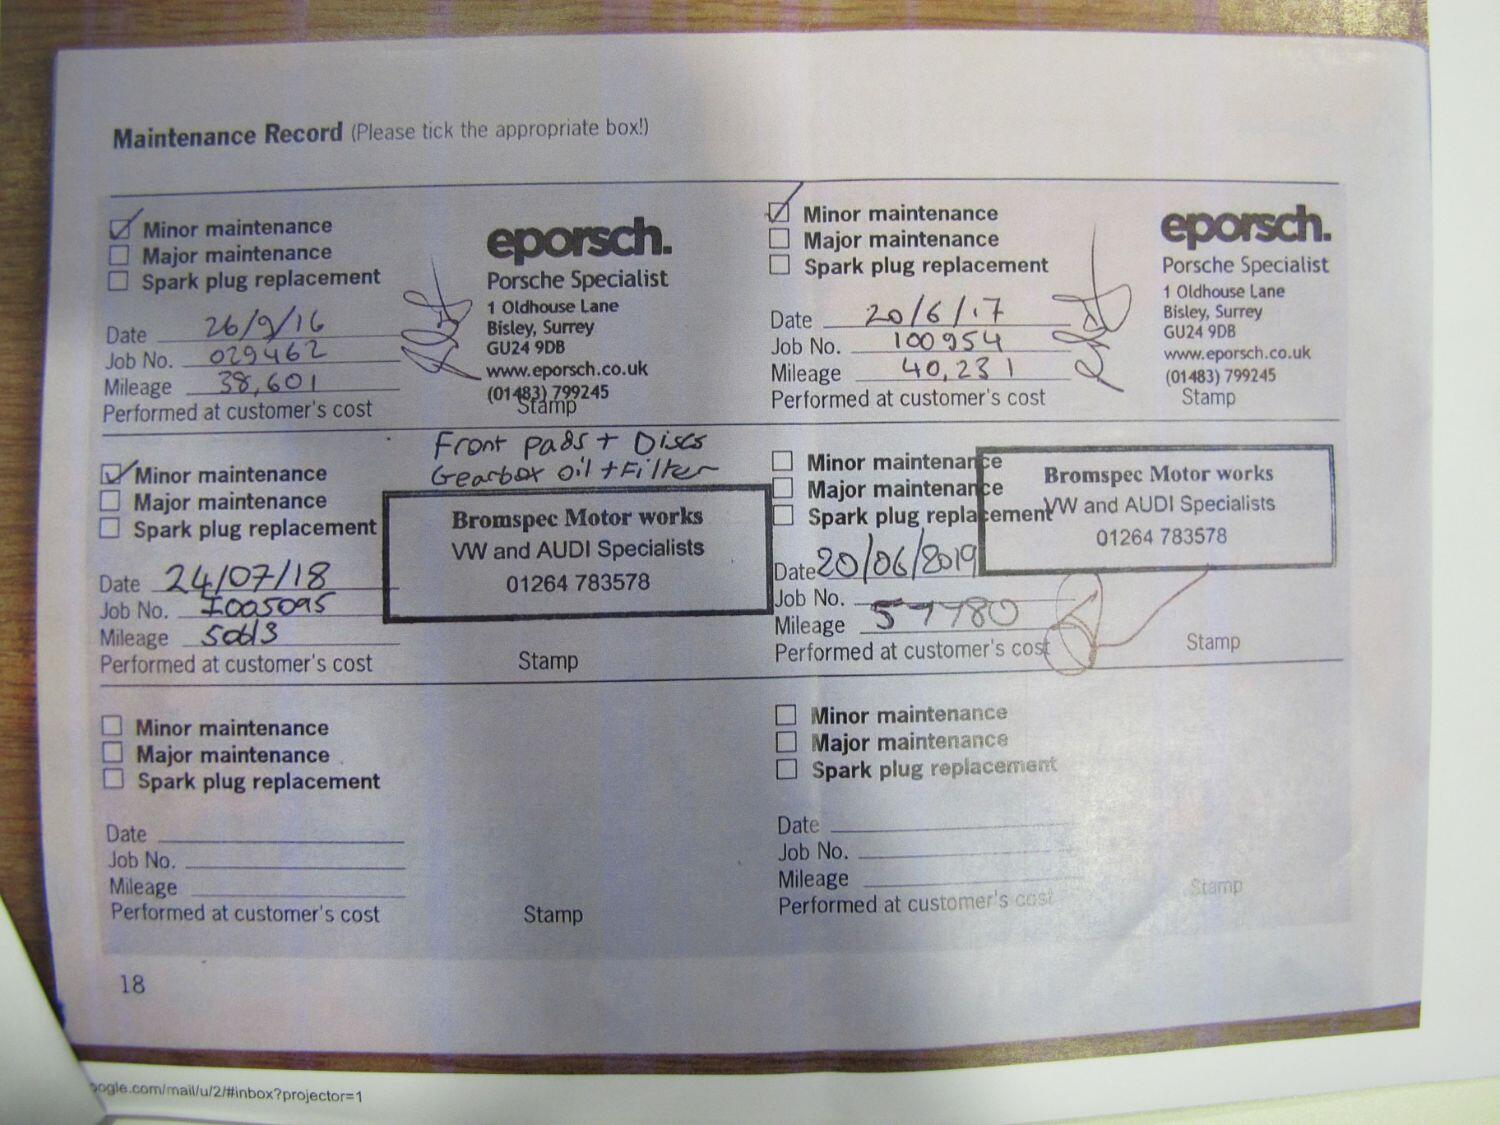 Maintenance Record (Please tick the appropriate box!)
Minor maintenance
Major maintenance
Spark plug replacement
Date 26/9/16
Job No. 029462
Mileage 38,601
Performed at customer's cost
eporsch.
Porsche Specialist
1 Oldhouse Lane
Bisley, Surrey
GU24 9DB
www.eporsch.co.uk
(01483) 799245
Stamp
Minor maintenance
Major maintenance
Spark plug replacement
Date 20/6/17
Job No. 100954
Mileage 40,231
Performed at customer's cost
eporsch.
Porsche Specialist
1 Oldhouse Lane
Bisley, Surrey
GU24 9DB
www.eporsch.co.uk
(01483) 799245
Stamp
Front pads + Discs
Gearbox oil + Filter
Minor maintenance
Major maintenance
Spark plug replacement
Date 24/07/18
Job No. I005095
Mileage 50613
Performed at customer's cost
Bromspec Motor works
VW and AUDI Specialists
01264 783578
Stamp
Minor maintenance
Major maintenance
Spark plug replacement
Date 20/06/2019
Job No.
Mileage 57780
Performed at customer's cost
Bromspec Motor works
VW and AUDI Specialists
01264 783578
Stamp
Minor maintenance
Major maintenance
Spark plug replacement
Date
Job No.
Mileage
Performed at customer's cost
Stamp
Minor maintenance
Major maintenance
Spark plug replacement
Date
Job No.
Mileage
Performed at customer's cost
Stamp
18
oogle.com/mail/u/2/#inbox?projector=1